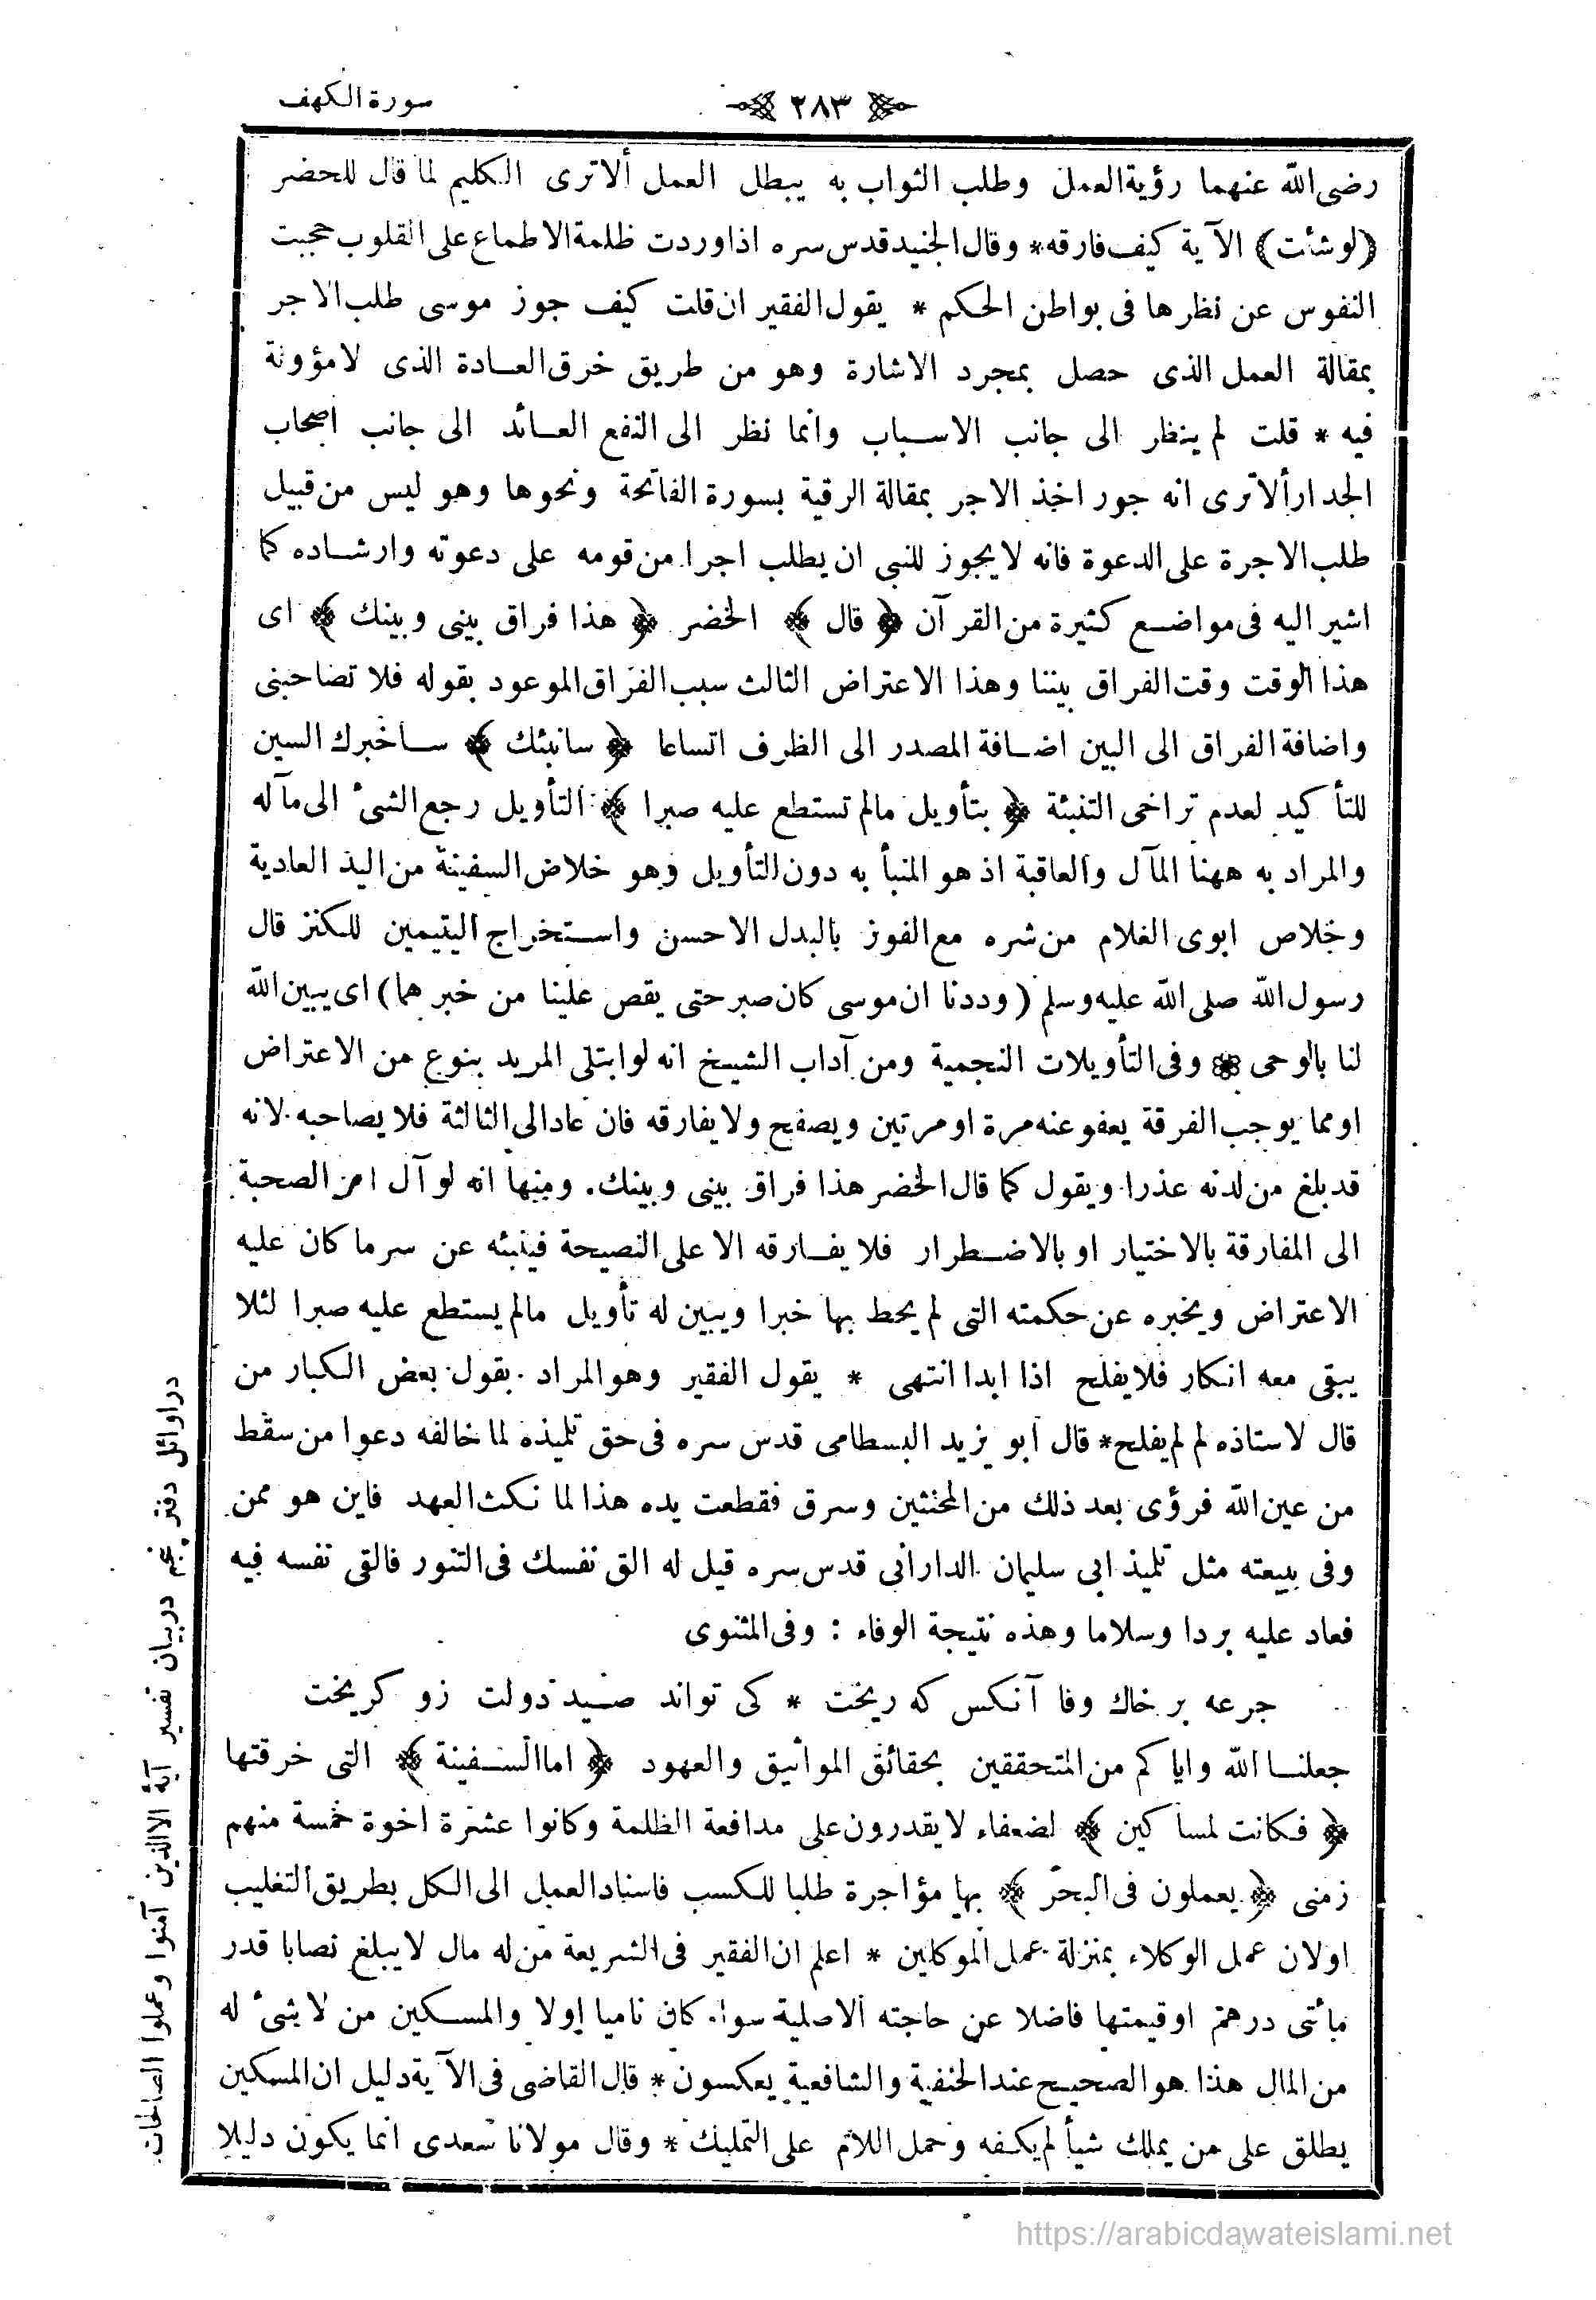 سورة الكهف
٢٨٣
رضى الله عنهما رؤية العمل وطلب الثواب به يبطل العمل ألا ترى الكليم لما قال للخضر
(لوشئت) الآية كيف فارقه * وقال الجنيد قدس سره اذا وردت ظلمة الاطماع على القلوب حجبت
النفوس عن نظرها فى بواطن الحكم * يقول الفقير ان قلت كيف جوز موسى طلب الاجر
بمقالة العمل الذى حصل بمجرد الاشارة وهو من طريق خرق العادة الذى لا مؤونة
فيه * قلت لم ينظر الى جانب الاسباب وانما نظر الى النفع العائد الى جانب اصحاب
الجدار ألا ترى انه جور اخذ الاجر بمقالة الرقية بسورة الفاتحة ونحوها وهو ليس من قبيل
طلب الاجرة على الدعوة فانه لا يجوز للنبى ان يطلب اجرا من قومه على دعوته وارشاده كما
اشير اليه فى مواضع كثيرة من القرآن ﴿ قال ﴾ الخضر ﴿ هذا فراق بينى وبينك ﴾ اى
هذا الوقت وقت الفراق بيننا وهذا الاعتراض الثالث سبب الفراق الموعود بقوله فلا تصاحبنى
واضافة الفراق الى البين اضافة المصدر الى الظرف اتساعا ﴿ سانبئك ﴾ سأخبرك السين
للتأكيد لعدم تراخى التنبئة ﴿ بتأويل مالم تستطع عليه صبرا ﴾ التأويل رجع الشئ الى مآله
والمراد به ههنا المآل والعاقبة اذ هو المنبأ به دون التأويل وهو خلاص السفينة من اليد العادية
وخلاص ابوى الغلام من شره مع الفوز بالبدل الاحسن واستخراج اليتيمين للكنز قال
رسول الله صلى الله عليه وسلم (وددنا ان موسى كان صبر حتى يقص علينا من خبرهما) اى يبين الله
لنا بالوحى ❁ وفى التأويلات النجمية ومن آداب الشيخ انه لو ابتلى المريد بنوع من الاعتراض
او مما يوجب الفرقة يعفو عنه مرة او مرتين ويصفح ولا يفارقه فان عاد الى الثالثة فلا يصاحبه لانه
قد بلغ من لدنه عذرا ويقول كما قال الخضر هذا فراق بينى وبينك. ومنها انه لو آل امر الصحبة
الى المفارقة بالاختيار او بالاضطرار فلا يفارقه الا على النصيحة فينبئه عن سر ما كان عليه
الاعتراض ويخبره عن حكمته التى لم يحط بها خبرا ويبين له تأويل مالم يستطع عليه صبرا لئلا
يبقى معه انكار فلا يفلح اذا ابدا انتهى * يقول الفقير وهو المراد بقول بعض الكبار من
قال لاستاذه لم لم يفلح * قال ابو يزيد البسطامى قدس سره فى حق تلميذه لما خالفه دعوا من سقط
من عين الله فرؤى بعد ذلك من المخنثين وسرق فقطعت يده هذا لما نكث العهد فاين هو ممن
وفى ببيعته مثل تلميذ ابى سليمان الدارانى قدس سره قيل له الق نفسك فى التنور فالقى نفسه فيه
فعاد عليه بردا وسلاما وهذه نتيجة الوفاء : وفى المثنوى
جرعه بر خاك وفا آنكس كه ريخت * كى تواند صيد دولت زو كريخت
جعلنا الله واياكم من المتحققين بحقائق المواثيق والعهود ﴿ اما السفينة ﴾ التى خرقتها
﴿ فكانت لمساكين ﴾ لضعفاء لا يقدرون على مدافعة الظلمة وكانوا عشرة اخوة خمسة منهم
زمنى ﴿ يعملون فى البحر ﴾ بها مؤاجرة طلبا للكسب فاسناد العمل الى الكل بطريق التغليب
اولان عمل الوكلاء بمنزلة عمل الموكلين * اعلم ان الفقير فى الشريعة من له مال لا يبلغ نصابا قدر
مأتى درهم اوقيمتها فاضلا عن حاجته الاصلية سواء كان ناميا اولا والمسكين من لا شئ له
من المال هذا هو الصحيح عند الحنفية والشافعية يعكسون * قال القاضى فى الآية دليل ان المسكين
يطلق على من يملك شيأ لم يكفه وحمل اللام على التمليك * وقال مولانا سعدى انما يكون دليلا
در اوائل دفتر پنجم در بيان تفسير آية الا الذين آمنوا وعملوا الصالحات
https://arabicdawateislami.net